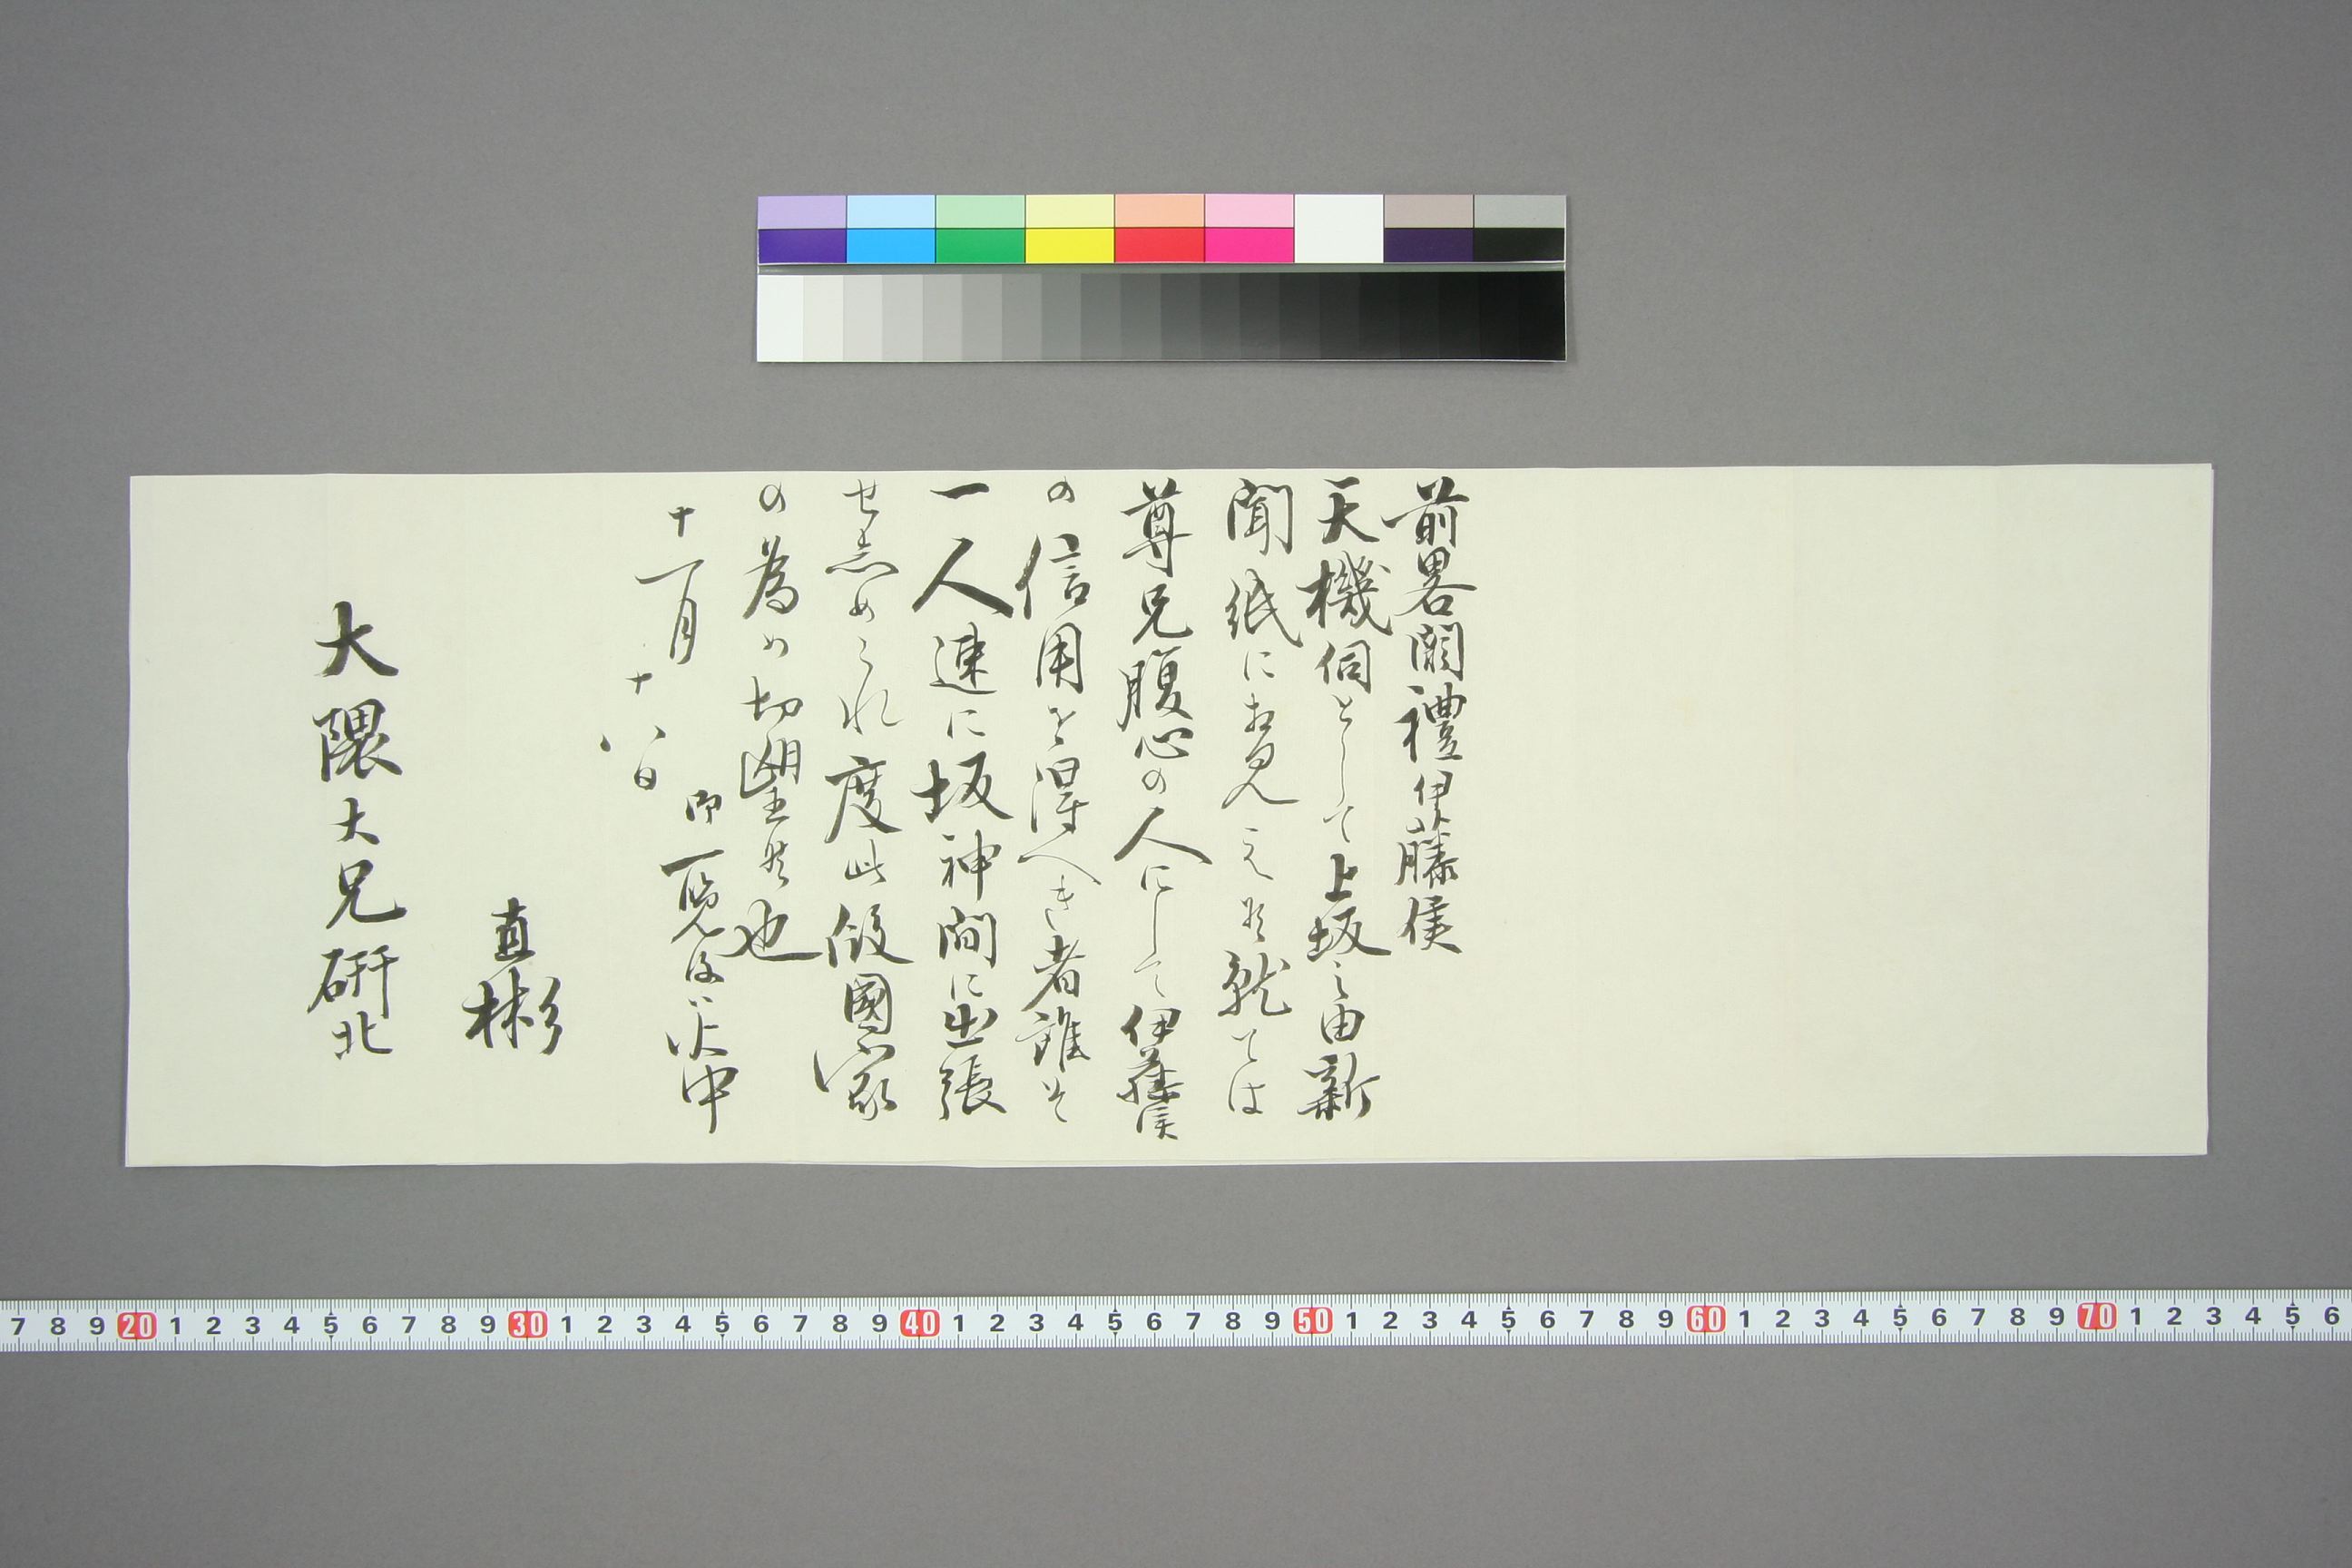 前畧闕禮伊藤侯
天機伺として上坂之由新
聞紙にお見え候就ては
尊兄腹心の人にして伊藤侯
の信用を得へき者誰そ
一人速に坂神間に出張
せ志められ度此段國家
の為め切望候也
御一覧後ハ火中
十一月十八日
直彬
大隈大兄研北
7 8 9 20 1 2 3 4 5 6 7 8 9 30 1 2 3 4 5 6 7 8 9 40 1 2 3 4 5 6 7 8 9 50 1 2 3 4 5 6 7 8 9 60 1 2 3 4 5 6 7 8 9 70 1 2 3 4 5 6